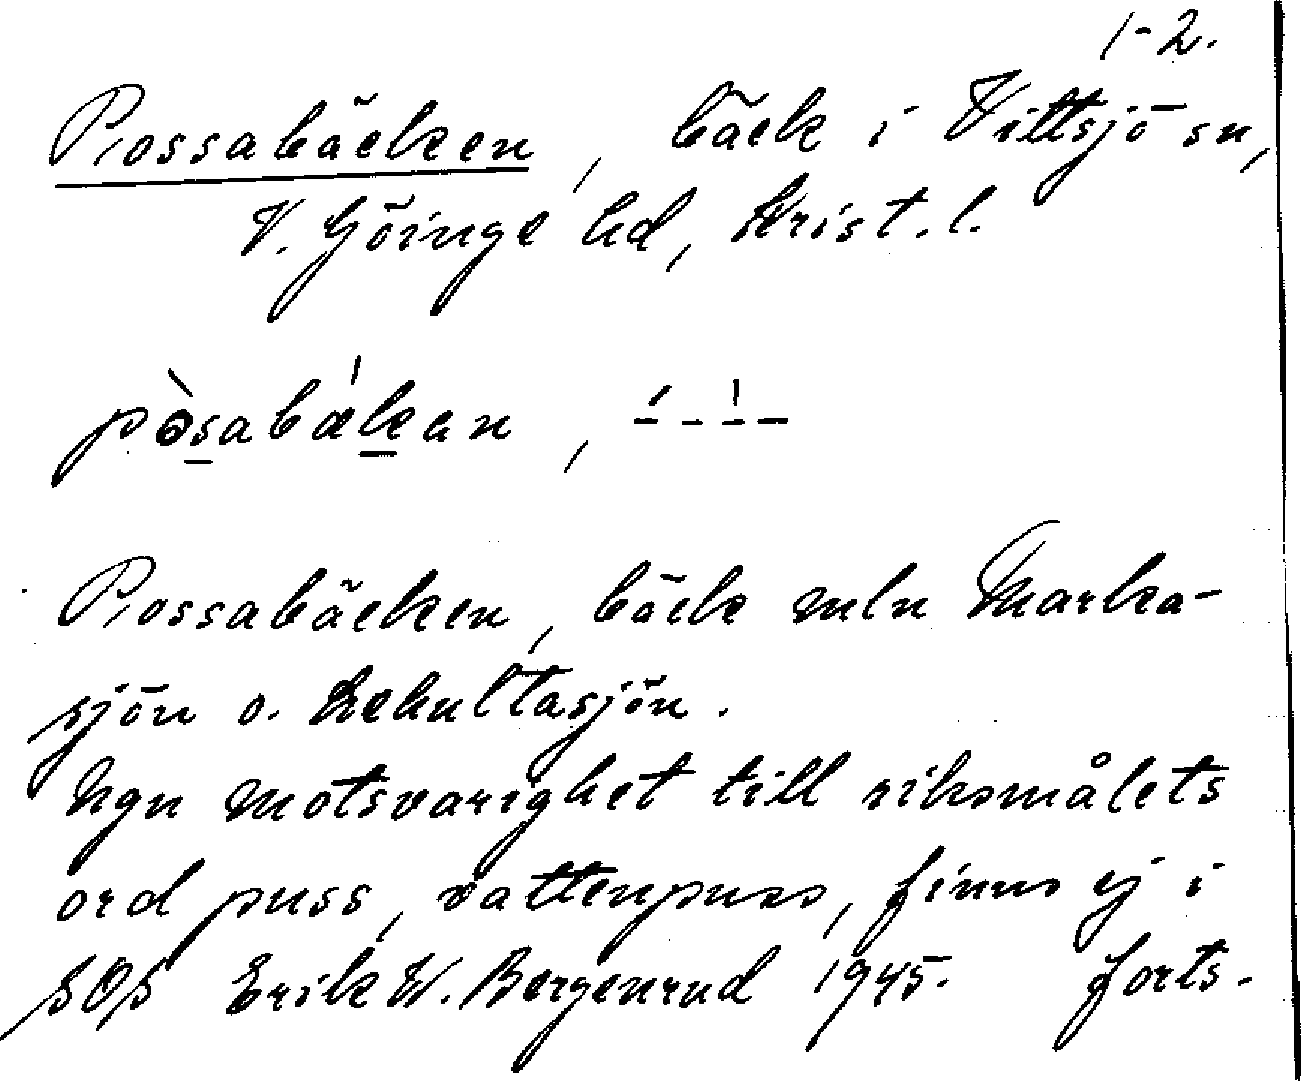 1-2.
Possabäcken, bäck i Vittsjö sn,
V. Göinge hd, Krist. l.
pòsabækan,
Possabäcken, bäck mln Marka-
sjön o. Lehultasjön.
Ngn motsvarighet till riksmålets
ord puss, vattenpuss, finns ej i
SOS Erik W. Bergenrud 1945. forts.